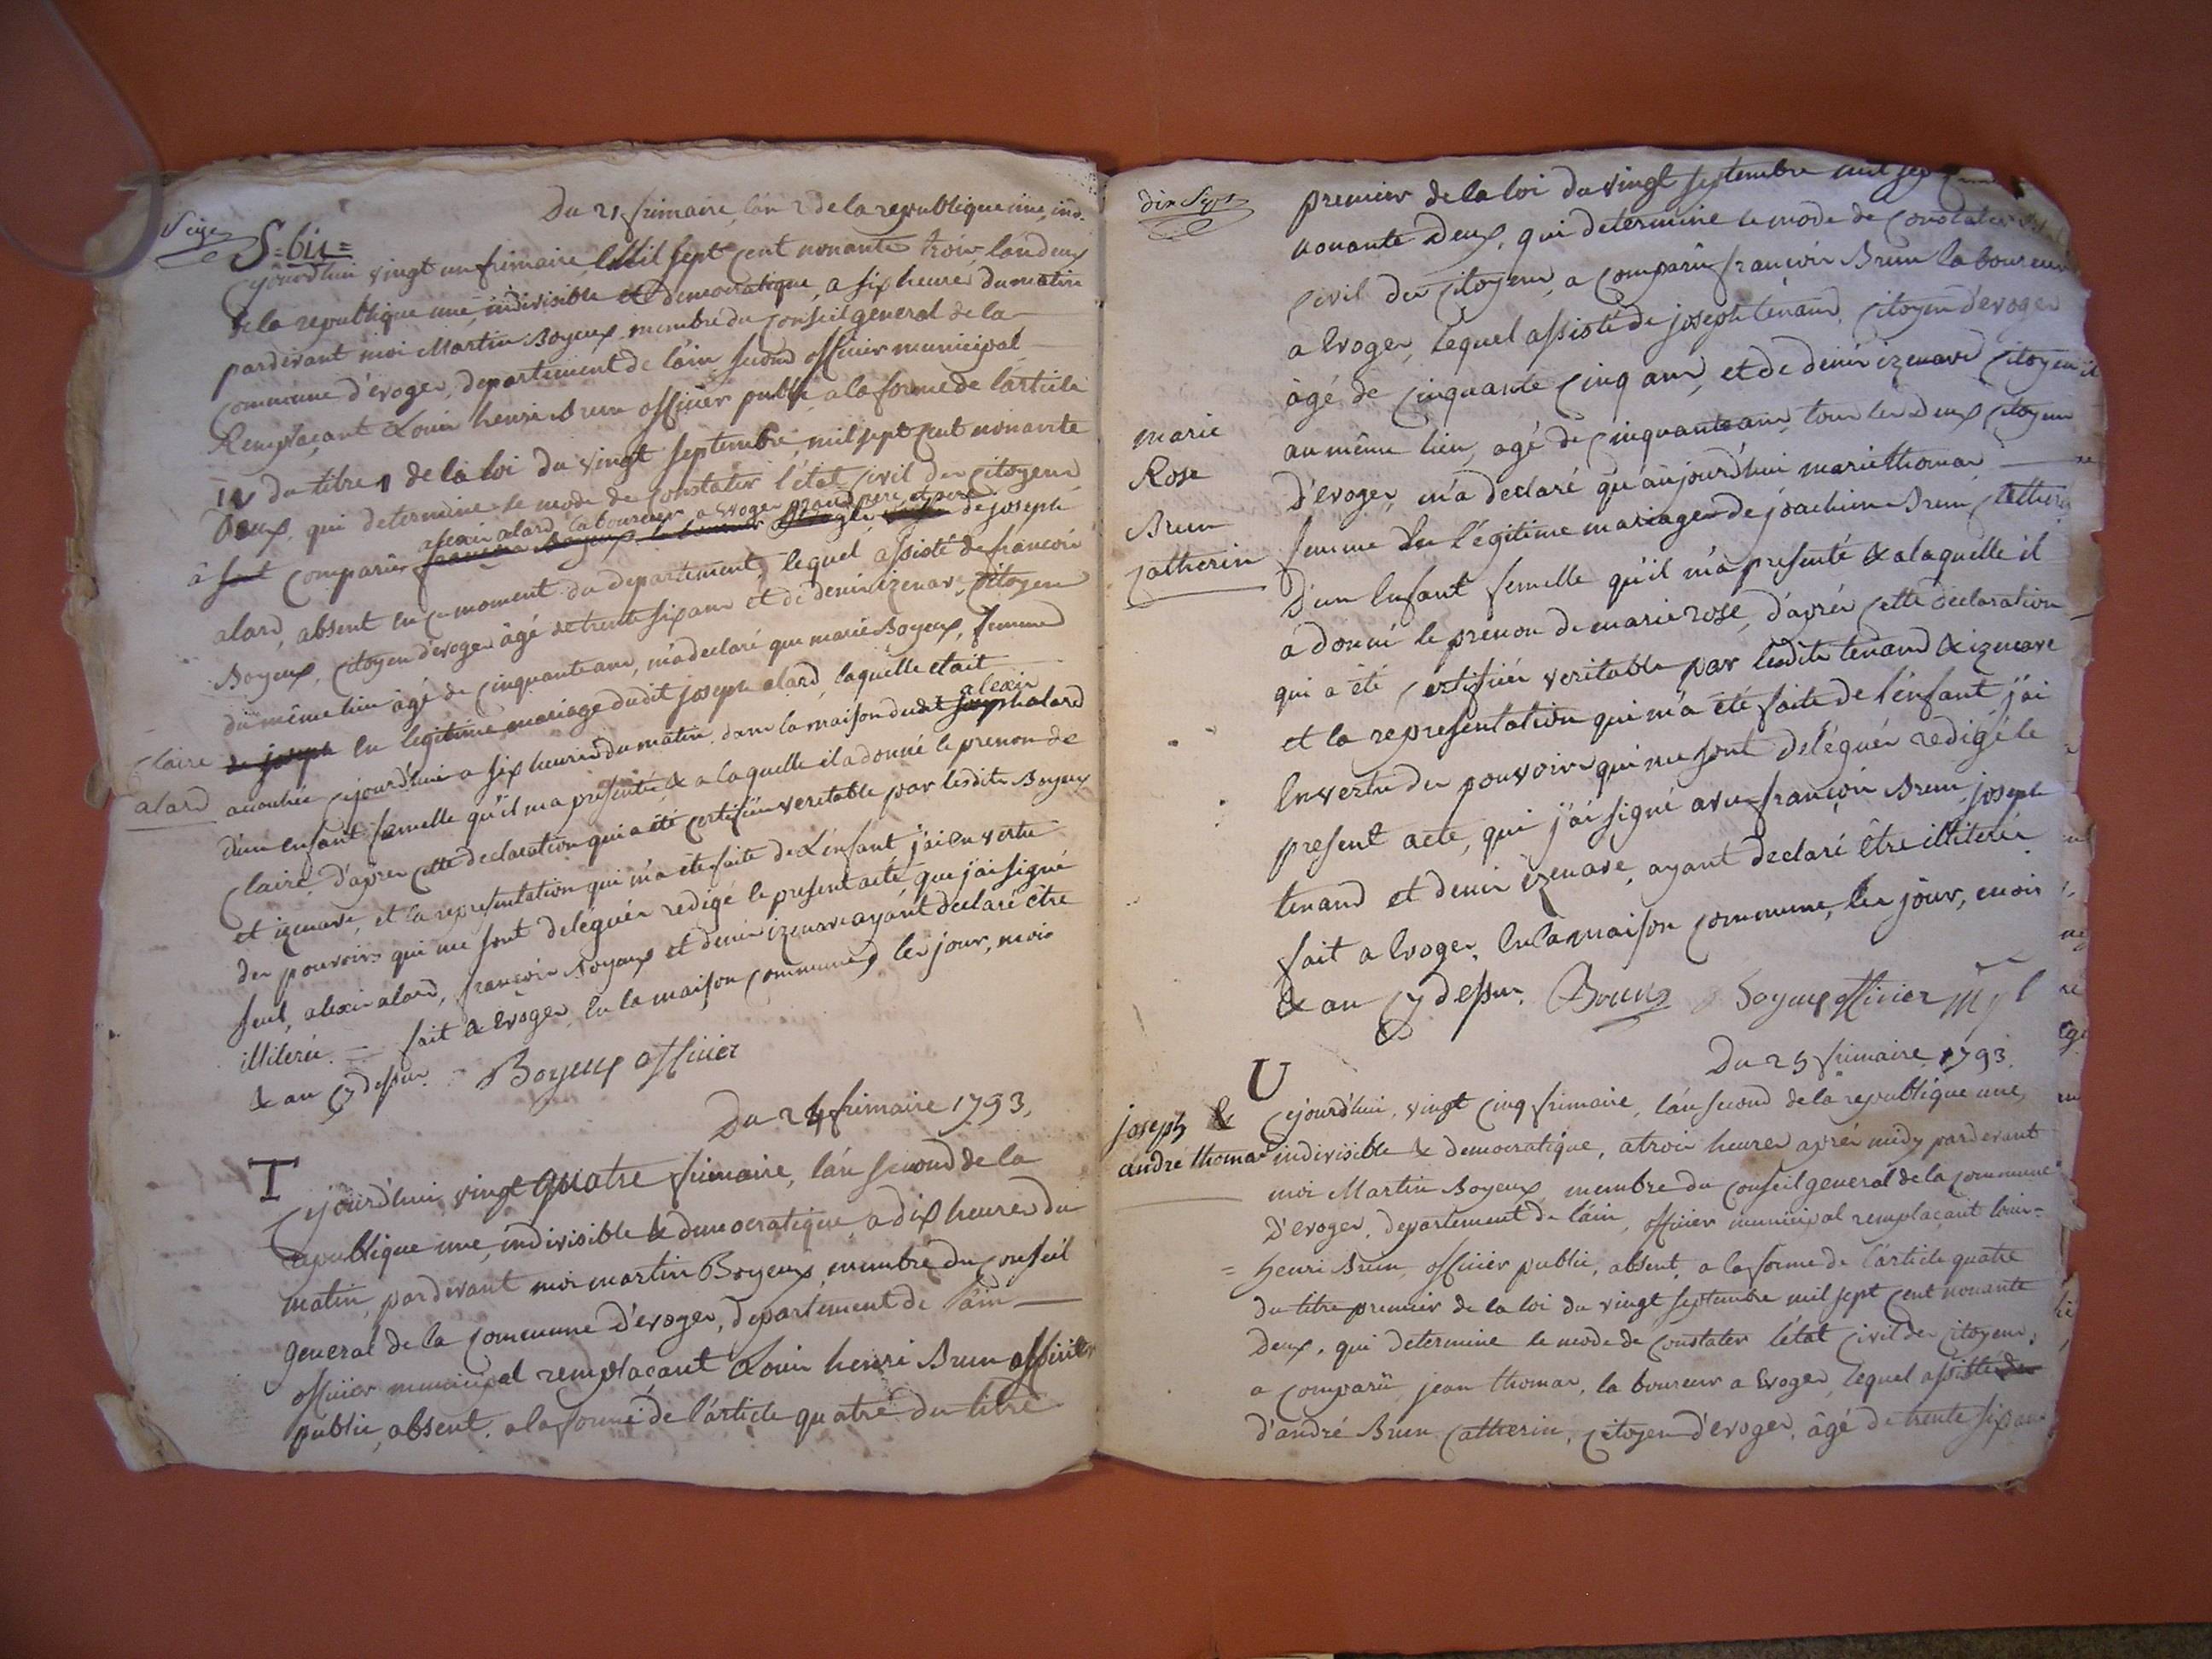 Seize
S=bis=
Du 21 frimaire, l'an 2 de la republique une, ind.
Cejourdhui vingt un frimaire, Mil sept cent nonante trois, l'an deux
de la republique une, indivisible et democratique, a six heures du matin
pardevant moi Martin Boyeux, membre du Conseil general de la
commune d'evoges, departement de l'ain second officier municipal
Remplaçant Louis henri Brun officier public, a la forme de l'article
IV du titre 1 de la loi du vingt septembre, mil sept cent nonante
deux, qui determine le mode de constater l'état civil des citoyens
alexis alard, laboureur a Evoges grand pere et pere
à sont comparûs françois Boyeux laboureur de joseph
alard, absent en ce moment du departement, lequel assisté de francois
Boyeux, citoyen d'evoges âgé de trente six ans et de denis izenave, citoyen
du même lieu âgé de cinquante ans, m'a declaré que marie Boyeux, femme
de joseph en legitime mariage dudit joseph alard, laquelle etait
alexis
claire
alard
accouchée cejourdhui a six heures du matin dans la maison dudit joseph alard
d'un enfant femelle qu'il m'a presenté & a laquelle il a donné le prenon de
claire, d'après cette declaration qui a été certifiée veritable par lesdits Boyeux
et izenave, et la representation qui m'a été faite de L'enfant j'ai en vertu
des pouvoirs qui me sont delégués redigé le present acte que j'ai signé
seul, alexis alard, françois Boyeux et denis izenave ayant declaré être
illiterés. = fait a Evoges, en la maison commune, les jour, mois
& an cy dessus. Boyeux officier
Du 24 frimaire 1793,
T
Cejourd'hui vingt quatre frimaire, l'an second de la
republique une, indivisible & democratique, a dix heures du
matin, pardevant moi martin Boyeux, membre du conseil
general de la commune d'evoges, departement de l'ain
officier municipal remplaçant Louis henri Brun officier
public, absent, a la forme de l'article quatre du titre
dix Sept
premier de la loi du vingt septembre mil sept
nonante deux, qui determine le mode de constater
civil des citoyens, a comparû françois Brun laboureur
a Evoges, lequel assisté de joseph tenand, citoyen d'evoges
âgé de cinquante cinq ans, et de denis izenave citoyen
au même lieu, agé de cinquante ans, tous les deux citoyens
marie
Rose
Brun
catherin
d'evoges, m'a declaré qu'aujourd'hui marie thomas
femme en légitime mariage de joachim Brun,
d'un Enfant femelle qu'il m'a presenté & a laquelle il
a donné le prénon de marie rose, d'après cette declaration
qui a été certifiée veritable par lesdits tenand & izenave
et la representation qui m'a été faite de l'enfant j'ai
En vertu des pouvoirs qui me sont delégués redigé le
present acte, que j'ai signé avec françois Brun, joseph
tenand et denis izenave, ayant declaré être illiterés
fait a Evoges, en la maison commune, les jour, mois
& an cy dessus. Brun Boyeux officier
Du 25 frimaire 1793.
U
joseph &
andré thomas
Cejourdhui, vingt cinq frimaire, l'an second de la republique une,
indivisible & democratique, a trois heures après midy pardevant
moi Martin Boyeux membre du conseil general de la commune
D'evoges, departement de l'ain, officier municipal remplaçant louis=
=henri Brun, officier public, absent, a la forme de l'article quatre
du titre premier de la loi du vingt septembre mil sept cent nonante
deux, qui determine le mode de constater l'état civil des citoyens,
a comparû jean thomas, la boureur a Evoges, lequel assisté de
d'andré Brun Catherin, citoyen d'evoges, âgé de trente six ans